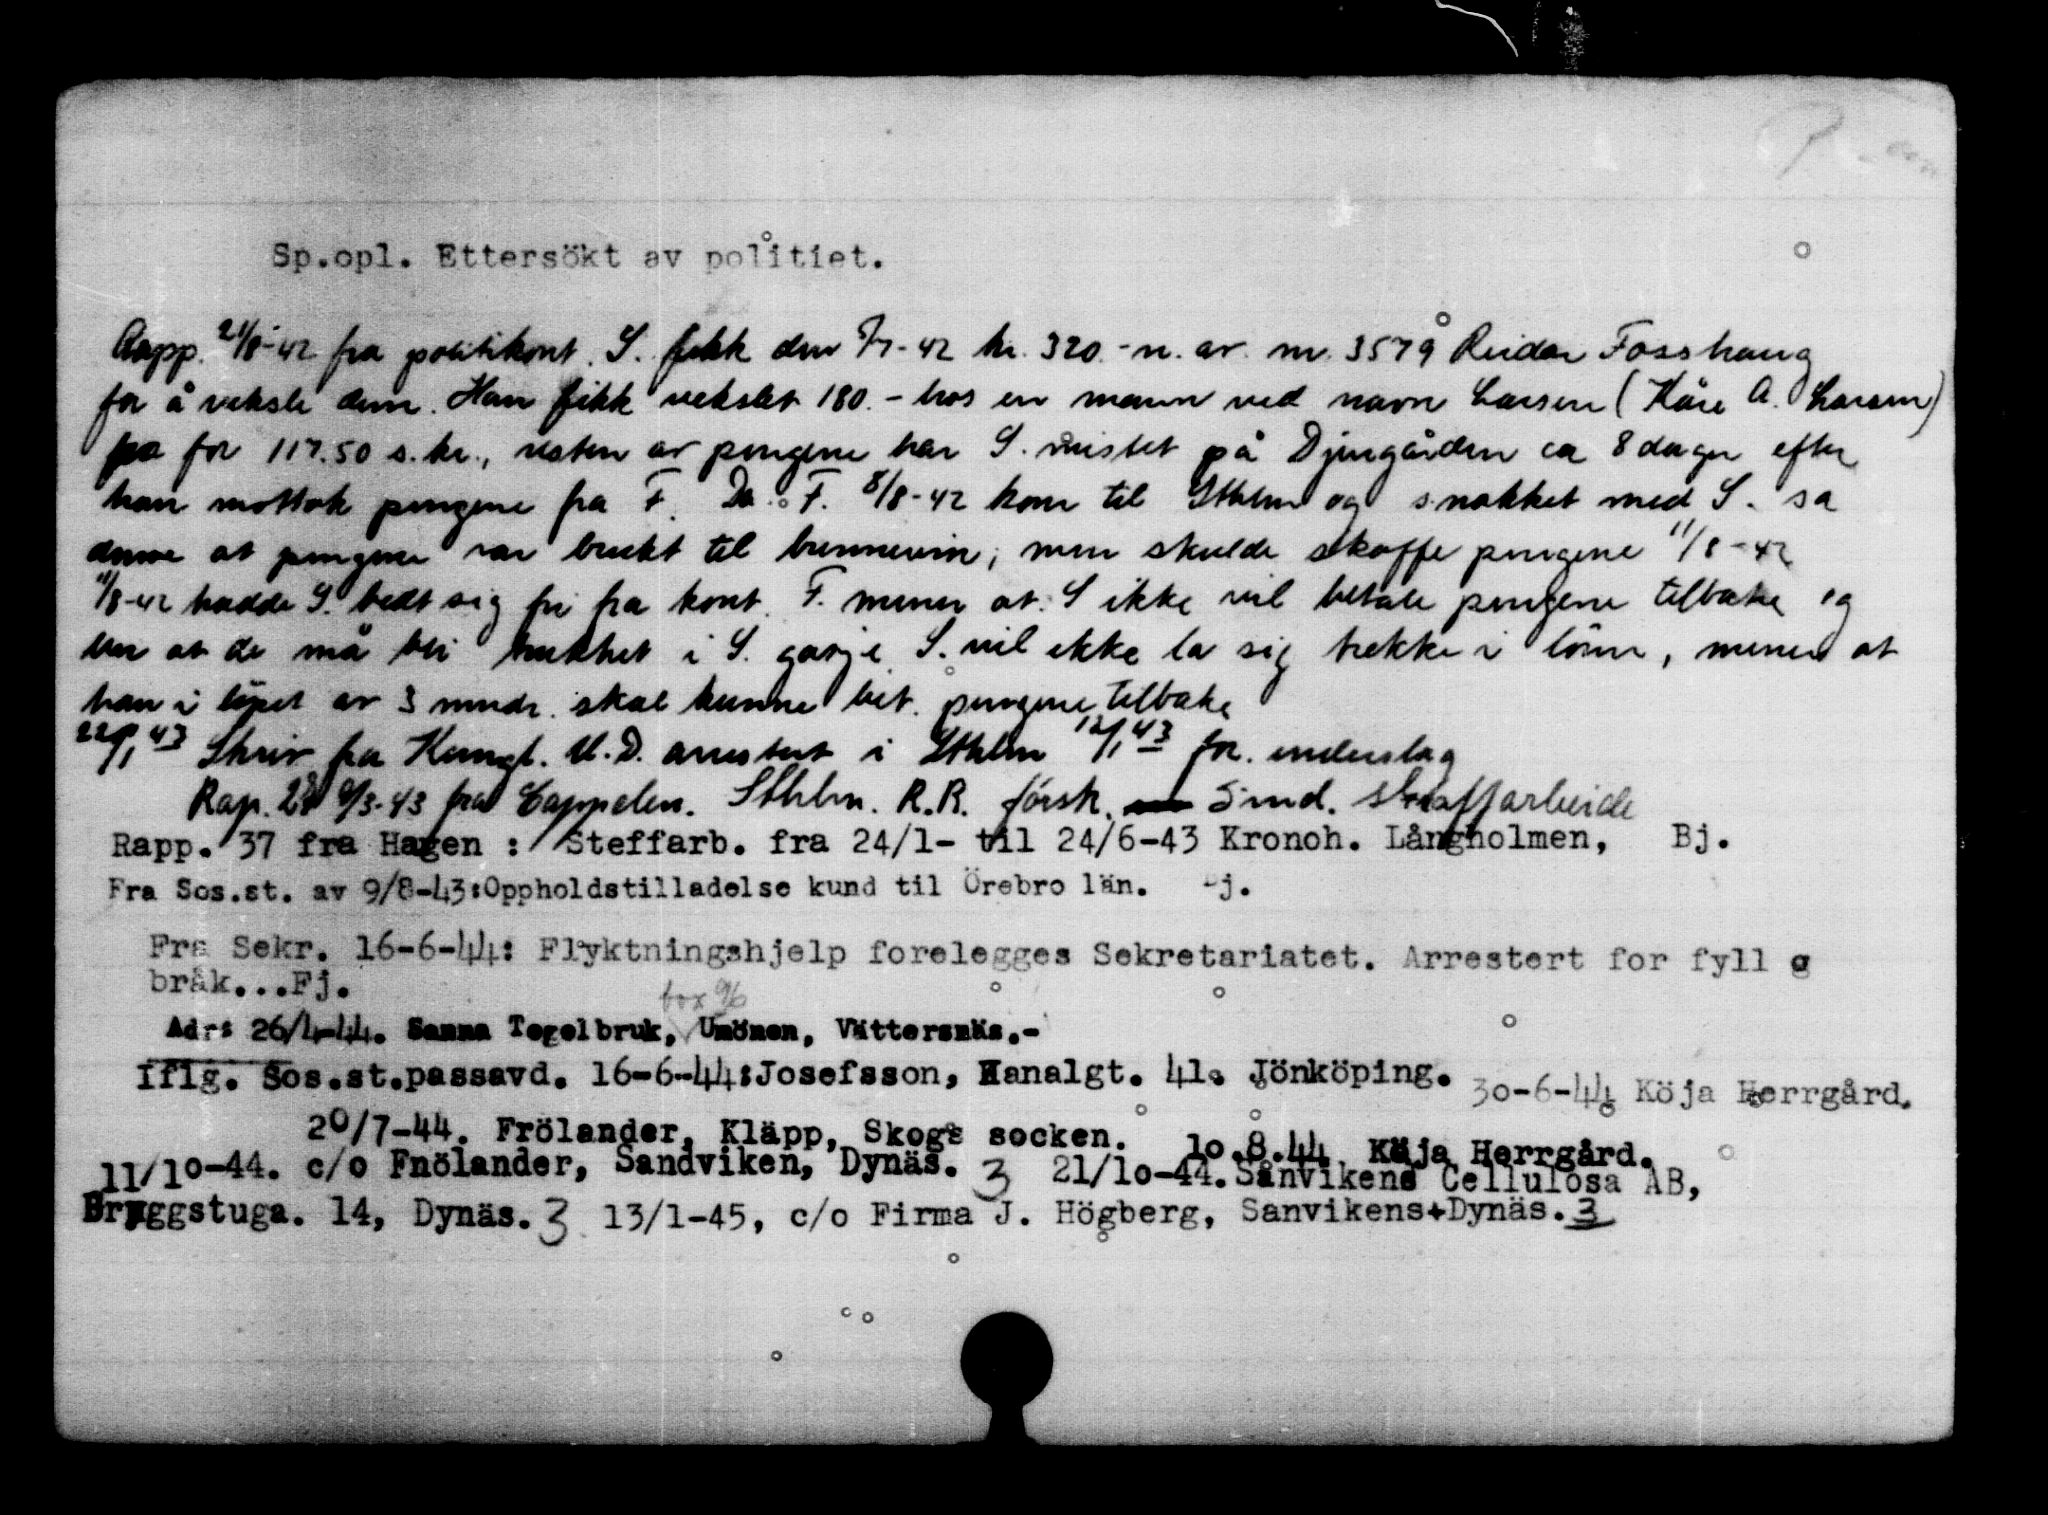 Sp.opl. Ettersökt av politiet.
Rapp. 21/8-42 fra politikont. S. fikk den 7/7-42 kr. 320.- n. av nr. 3579 Reidar Fosshaug
for å veksle dem. Han fikk vekslet 180.- hos en mann ved navn Larsen (Kåre A. Larsen)
for 117.50 s.kr., resten av pengene har S. mistet på Djurgården ca 8 dager efter
han mottok pengene fra F. Da F. 8/8-42 kom til Sthlm og snakket med S. sa
denne at pengene var brukt til brennevin, men skulde skaffe pengene 11/8-42
11/8-42 hadde S. bedt sig fri fra kont. F. mener at S ikke vil betale pengene tilbake og
ber at de må bli trukket i S. gasje S. vil ikke la sig trekke i lönn, mener at
han i löpet av 3 mndr. skal kunne bet. pengene tilbake
22/1 43 Skriv fra Kungl. U.D. arrestert i Sthlm 12/1 43 for underslag
Rap. 28 9/3-43 fra Cappelen. Sthlm. R.R. försk. 5 md. straffarbeide
Rapp. 37 fra Hagen : Steffarb. fra 24/1- til 24/6-43 Kronoh. Långholmen, Bj.
Fra Sos.st. av 9/8-43:Oppholdstilladelse kund til Örebro län. j.
Fra Sekr. 16-6-44: Flyktningshjelp forelegges Sekretariatet. Arrestert for fyll g
bråk...Fj.
box 96
Adr: 26/4-44. Sanna Tegelbruk, Unönen, Vättersnäs.-
Iflg. Sos.st.passavd. 16-6-44:Josefsson, Kanalgt. 41. Jönköping. 30-6-44 Köja Herrgård.
20/7-44. Frölander, Kläpp, Skogs socken. 10.8.44 Köja Herrgård.
11/10-44. c/o Fnölander, Sandviken, Dynäs. 3 21/10-44.Sånvikens Cellulosa AB,
Bryggstuga. 14, Dynäs. 3 13/1-45, c/o Firma J. Högberg, Sanvikens+Dynäs. 3